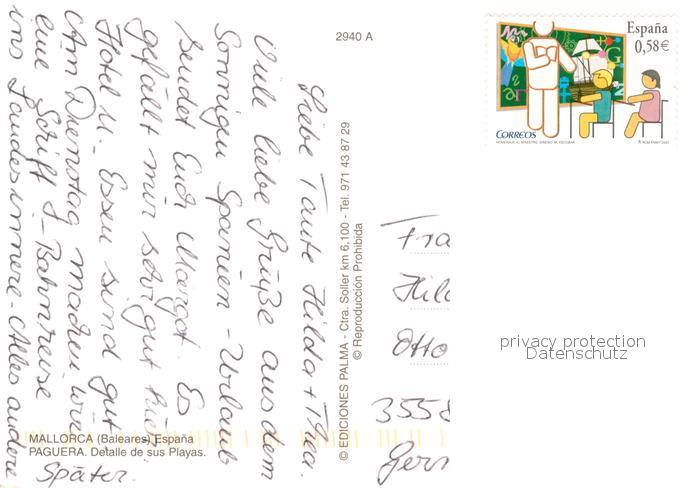 2940 A
Liebe Tante Hilda +
Viele liebe Grüße aus dem
Sonnigen Spanien-Urlaub
sendet Euch Margot. Es
gefällt mir sehr gut hier.
Hotel u. Essen sind gut.
Am Dienstag machen wir
eine Schiff-Bahnreise
ins Landesinnere - Alles andere
Später.
MALLORCA (Baleares) España
PAGUERA. Detalle de sus Playas.
© EDICIONES PALMA - Ctra. Soller km 6,100 - Tel. 971 43 87 29
© Reproducción Prohibida
España
0,58€
CORREOS
HOMENAJE AL MAESTRO. DISEÑO: M. ESCOBAR
Fra
Hild
Otto
3558
Germ
privacy protection
Datenschutz